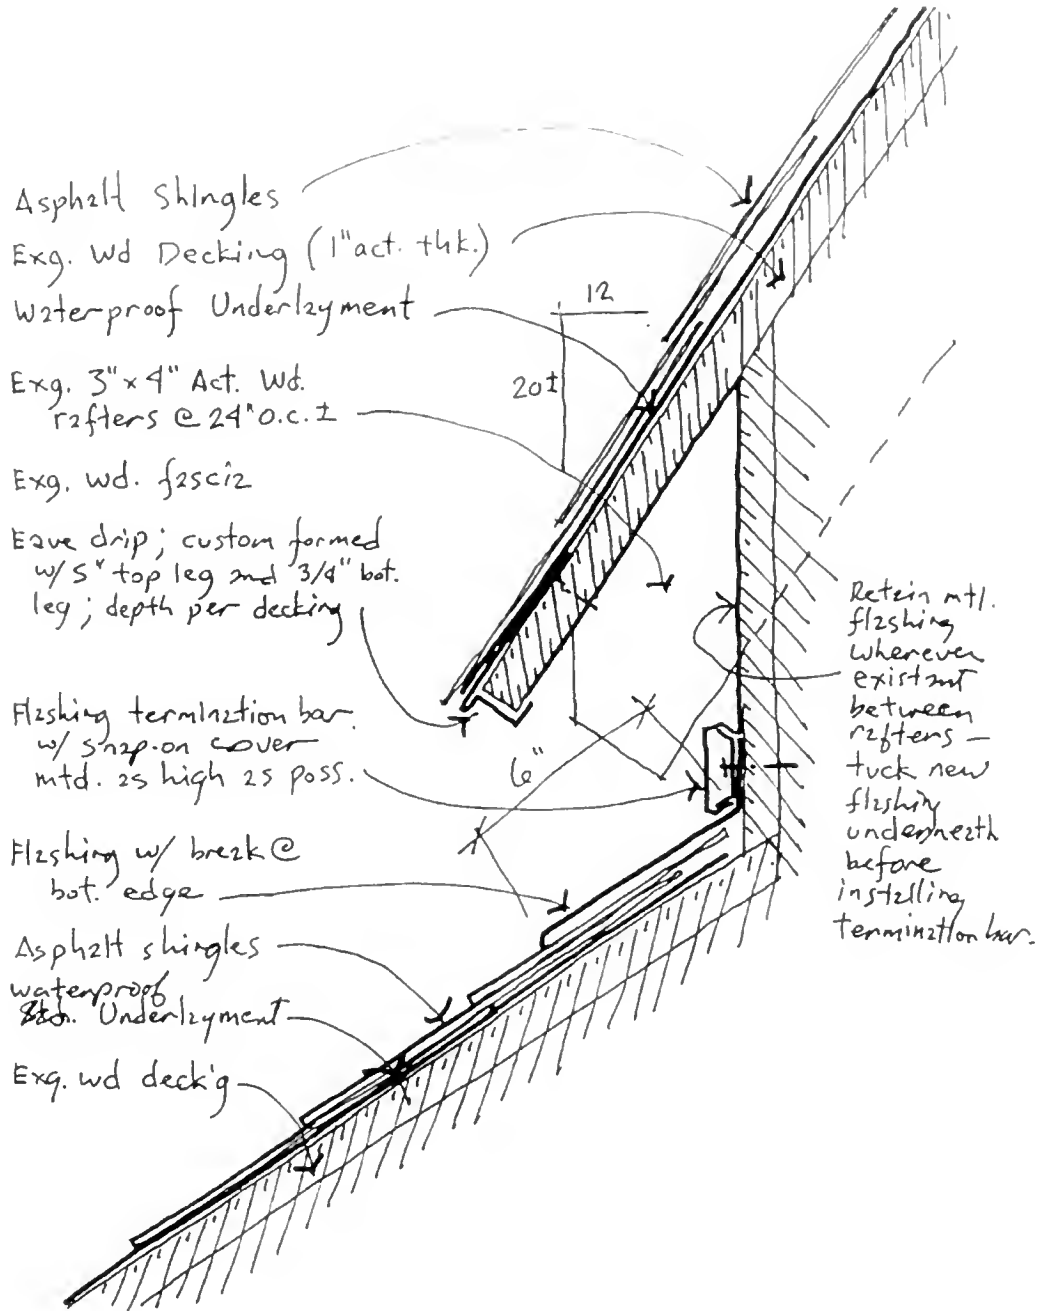 Asphalt Shingles
Exg. Wd Decking (1" act. thk.)
Waterproof Underlayment
12
20±
Exg. 3" x 4" Act. Wd.
rafters @ 24" o.c. ±
Exg. wd. fascia
Eave drip; custom formed
w/ 5" top leg and 3/4" bot.
leg; depth per decking
Flashing termination bar
w/ snap-on cover
mtd. as high as poss.
6"
Flashing w/ break @
bot. edge
Asphalt shingles
waterproof
Underlayment
Exg. wd deck'g
Retain mtl.
flashing
wherever
existant
between
rafters —
tuck new
flashing
underneath
before
installing
termination bar.